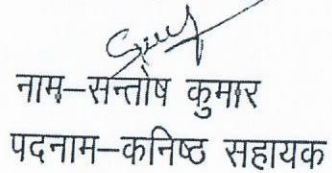 नाम–सन्तोष कुमार
पदनाम–कनिष्ठ सहायक